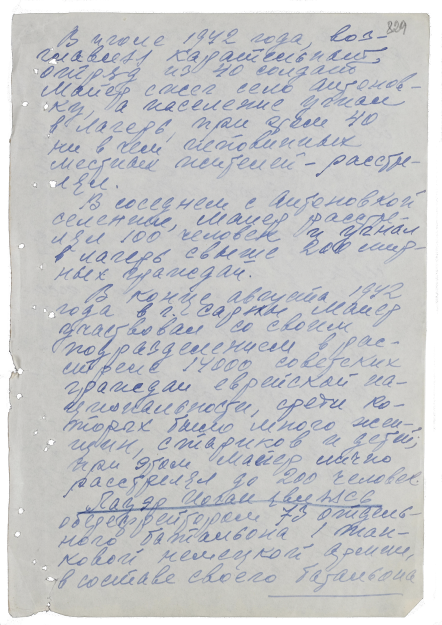 829
В июле 1942 года, воз-
главляя карательный
отряд из 40 солдат
Майер сжег село Антонов-
ку, а население угнал
в лагерь, при этом 40
ни в чем неповинных
местных жителей - расстре-
лял.
В соседнем с Антоновкой
селении, Майер расстре-
лял 100 человек и угнал
в лагерь свыше 200 мир-
ных граждан.
В конце августа 1942
года в г. Сарны Майер
участвовал со своим
подразделением в рас-
стреле 14000 советских
граждан еврейской на-
циональности, среди ко-
торых было много жен-
щин, стариков и детей,
при этом Майер лично
расстрелял до 200 человек
Лауэр Иоган являясь
обер-ефрейтором 73 отдель-
ного батальона 1 тан-
ковой немецкой армии,
в составе своего батальона